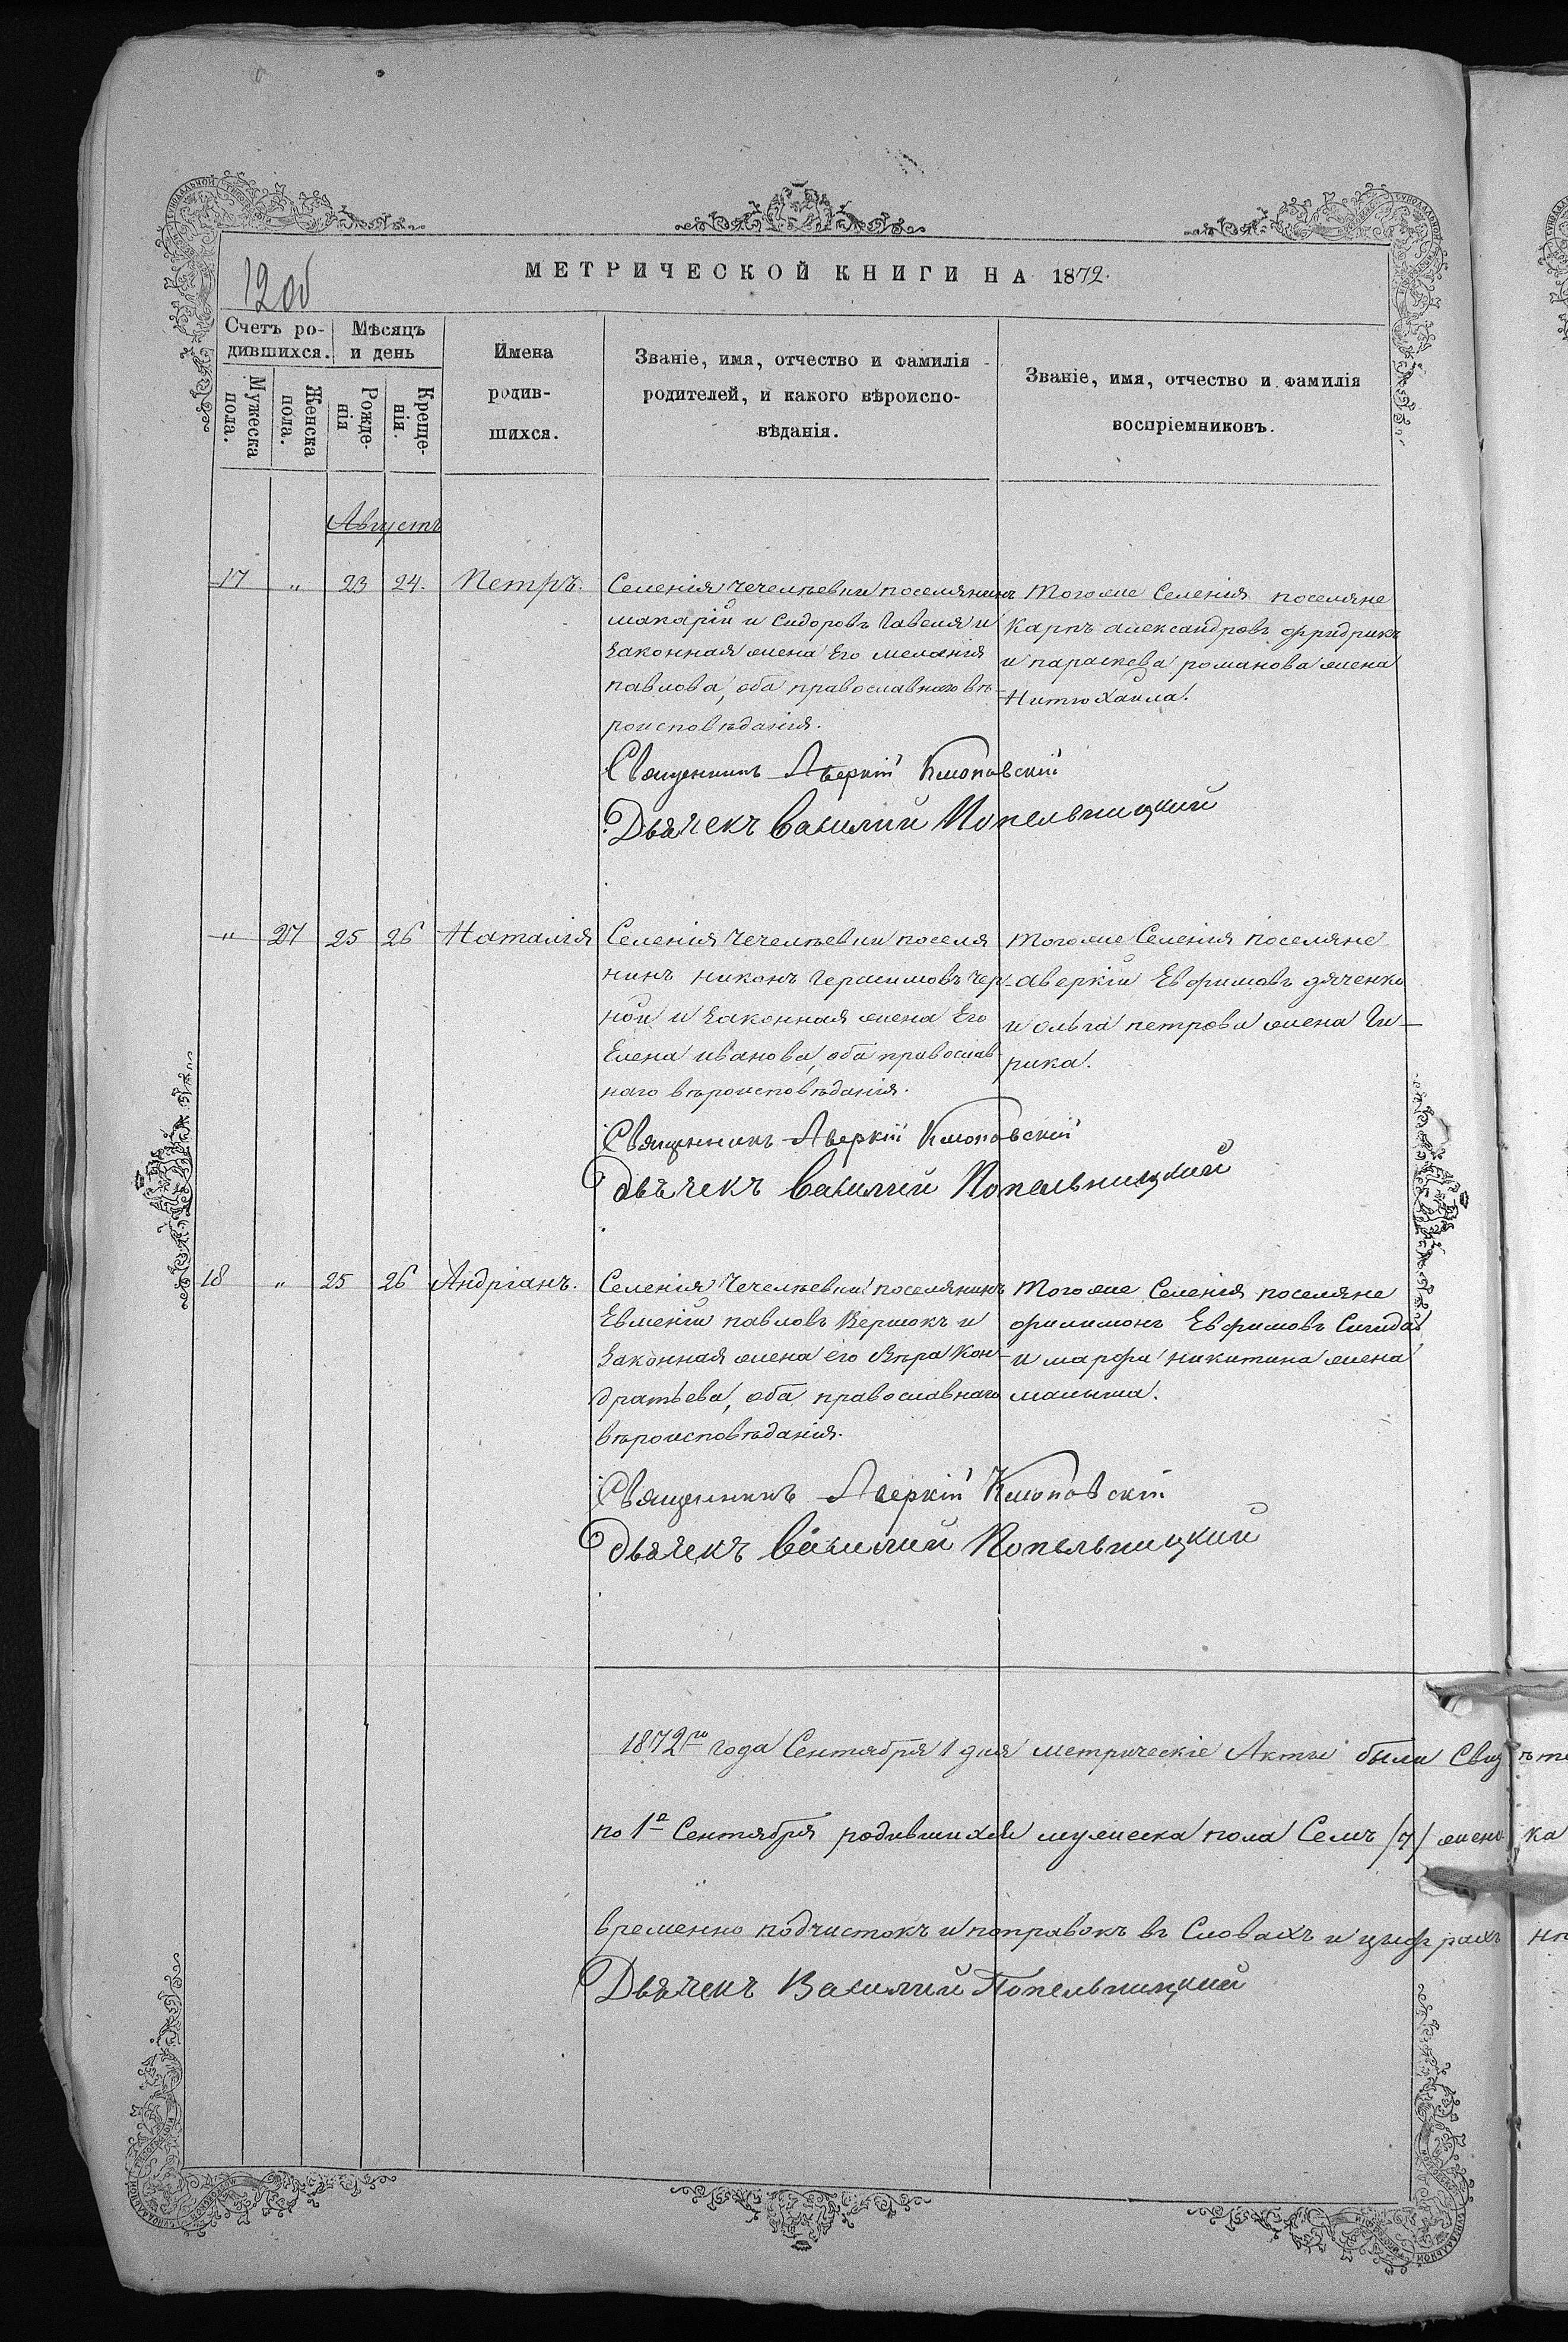 12об
МЕТРИЧЕСКОЙ КНИГИ НА 1872.
Счетъ ро-
дившихся.
Мужеска
пола.
Женска
пола.
Мѣсяцъ
и день
Рожде-
нія
Креще-
нія.
Имена
родив-
шихся.
Званіе, имя, отчество и фамилія
родителей, и какого вѣроиспо-
вѣданія.
Званіе, имя, отчество и фамилія
воспріемниковъ.
Августъ
17 " 23 24. Петръ.
Селенія Чечелѣевки поселянинъ
макарій и Сидоровъ Гавеля и
законная жена Его мелания
павлова, оба православнаго вѣ-
роисповѣданія.
Тогоже Селенія поселяне
Карпъ александровъ фридрикъ
и параскева романова жена
Нитюхаила.
Священникъ Аверкій Клоповскій
Дьячекъ Василий Попельницкий
" 27 25 26 Наталія
Селенія Чечелѣевки поселя
нинъ никонъ Герасимовъ Чер-
ной и законная жена Его
Елена иванова, оба православ
наго вѣроисповѣданія.
Тогоже Селенія поселяне
аверкій Евфимовъ дяченко
и ольга петрова жена Ги-
рика.
Священникъ Аверкій Клоповскій
Дьячекъ Василий Попельницкий
18 " 25 26 Андріанъ.
Селенія Чечелѣевки поселянинъ
Евменій павловъ Вершокъ и
законная жена его Вѣра Кон-
дратьева, оба православнаго
вѣроисповѣданія.
Тогоже Селенія поселяне
филимонъ Евфимовъ Сигида
и марфа никитина жена
малыша.
Священникъ Аверкій Клоповскій
Дьячекъ Василий Попельницкий
1872го года Сентября 1 дня метрическіе Акты были Свид
по 1е Сентября родившихся мужеска пола Семъ /7/ женс
временно подчистокъ и поправокъ въ Словахъ и цифрахъ
Дьячекъ Василий Попельницкий